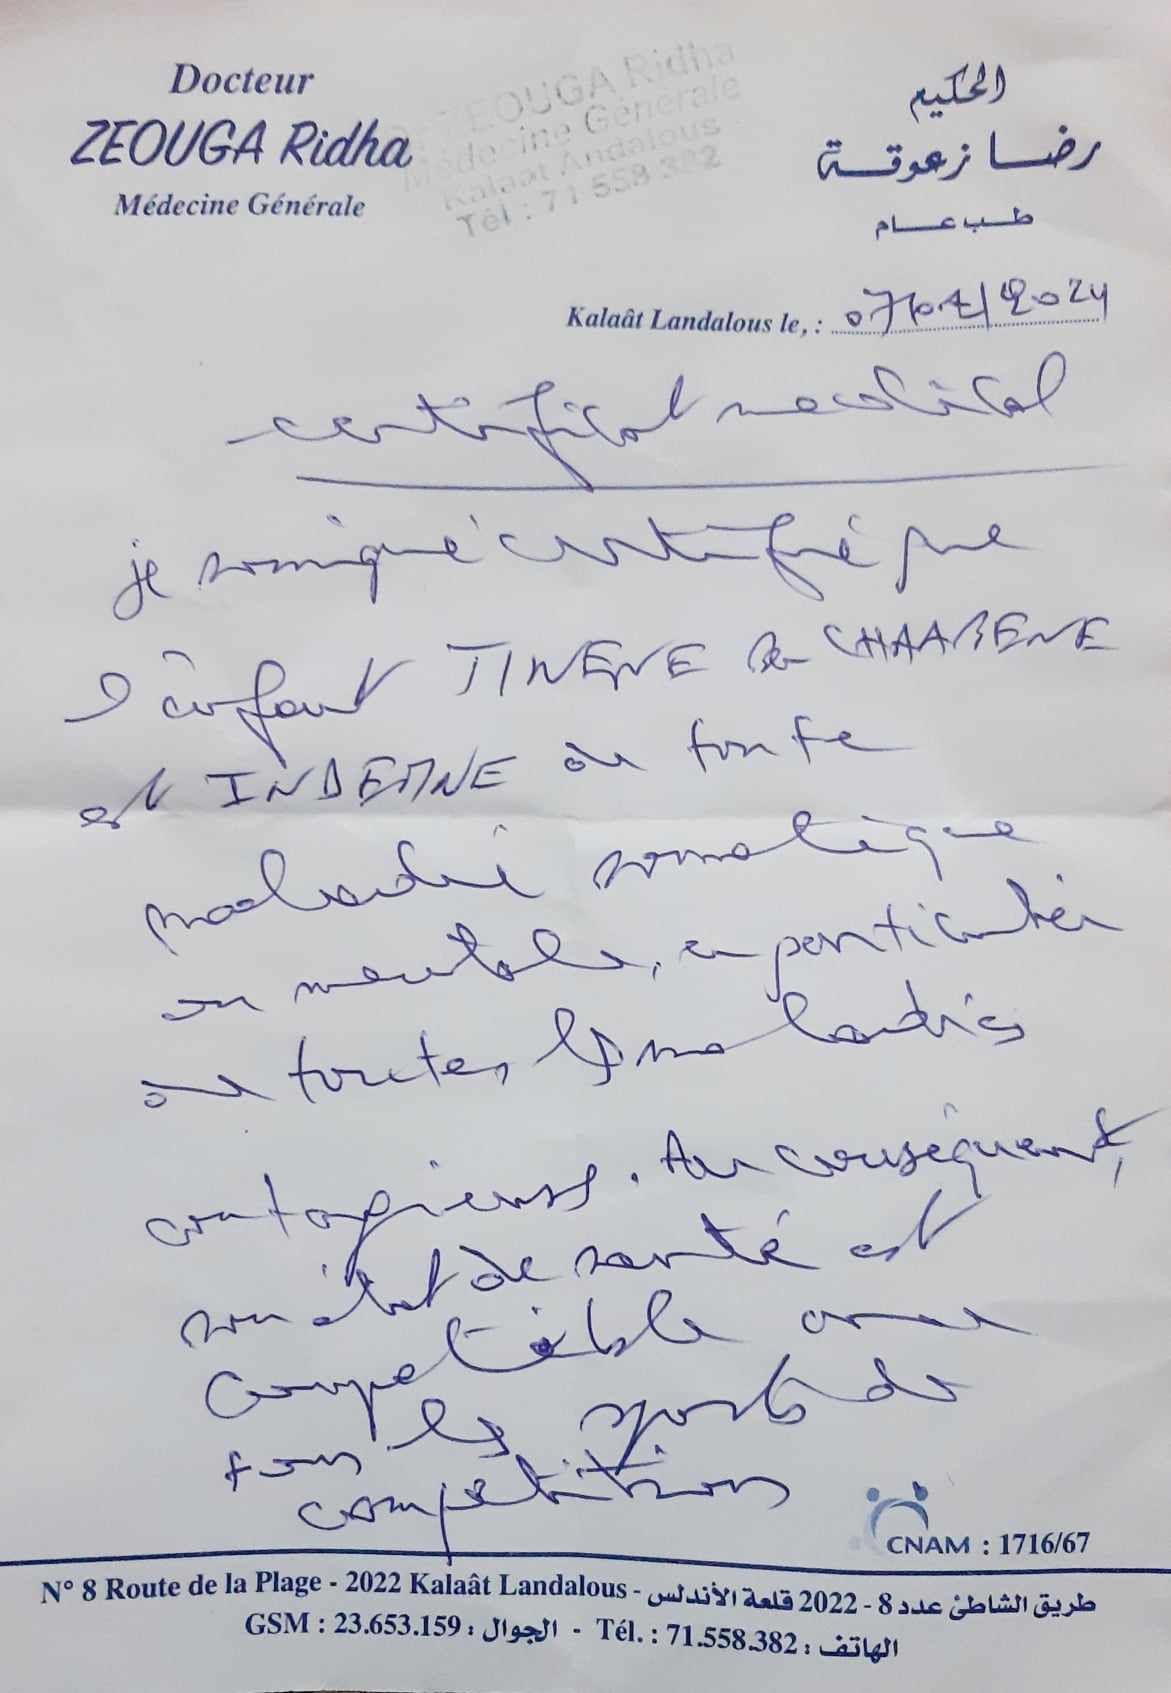 Docteur
ZEOUGA Ridha
Médecine Générale
ZEOUGA Ridha
Médecine Générale
Kalaat Andalous
Tél : 71 558 382
الحكيم
رضا زعوقة
طب عام
Kalaât Landalous le, : 07/01/2024
certificat medical
je sousigné certifie que
l'enfant TINENE CHAABENE
est INDEMNE de toute
maladie somatique
ou mentale, en particulier
de toutes les maladies
contagieuses. Au conséquent,
son état de santé est
compatible avec
tous les sports de
compétitions
CNAM : 1716/67
N° 8 Route de la Plage - 2022 Kalaât Landalous - طريق الشاطئ عدد 8 - 2022 قلعة الأندلس
GSM : 23.653.159 : الجوال - Tél. : 71.558.382 : الهاتف